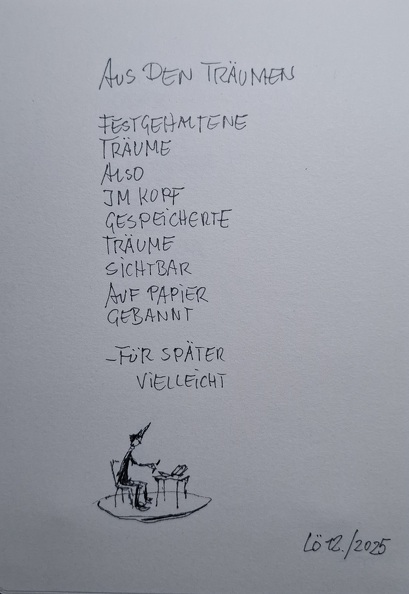 AUS DEN TRÄUMEN
FESTGEHALTENE
TRÄUME
ALSO
IM KOPF
GESPEICHERTE
TRÄUME
SICHTBAR
AUF PAPIER
GEBANNT
–FÜR SPÄTER
VIELLEICHT
Lö 12./2025